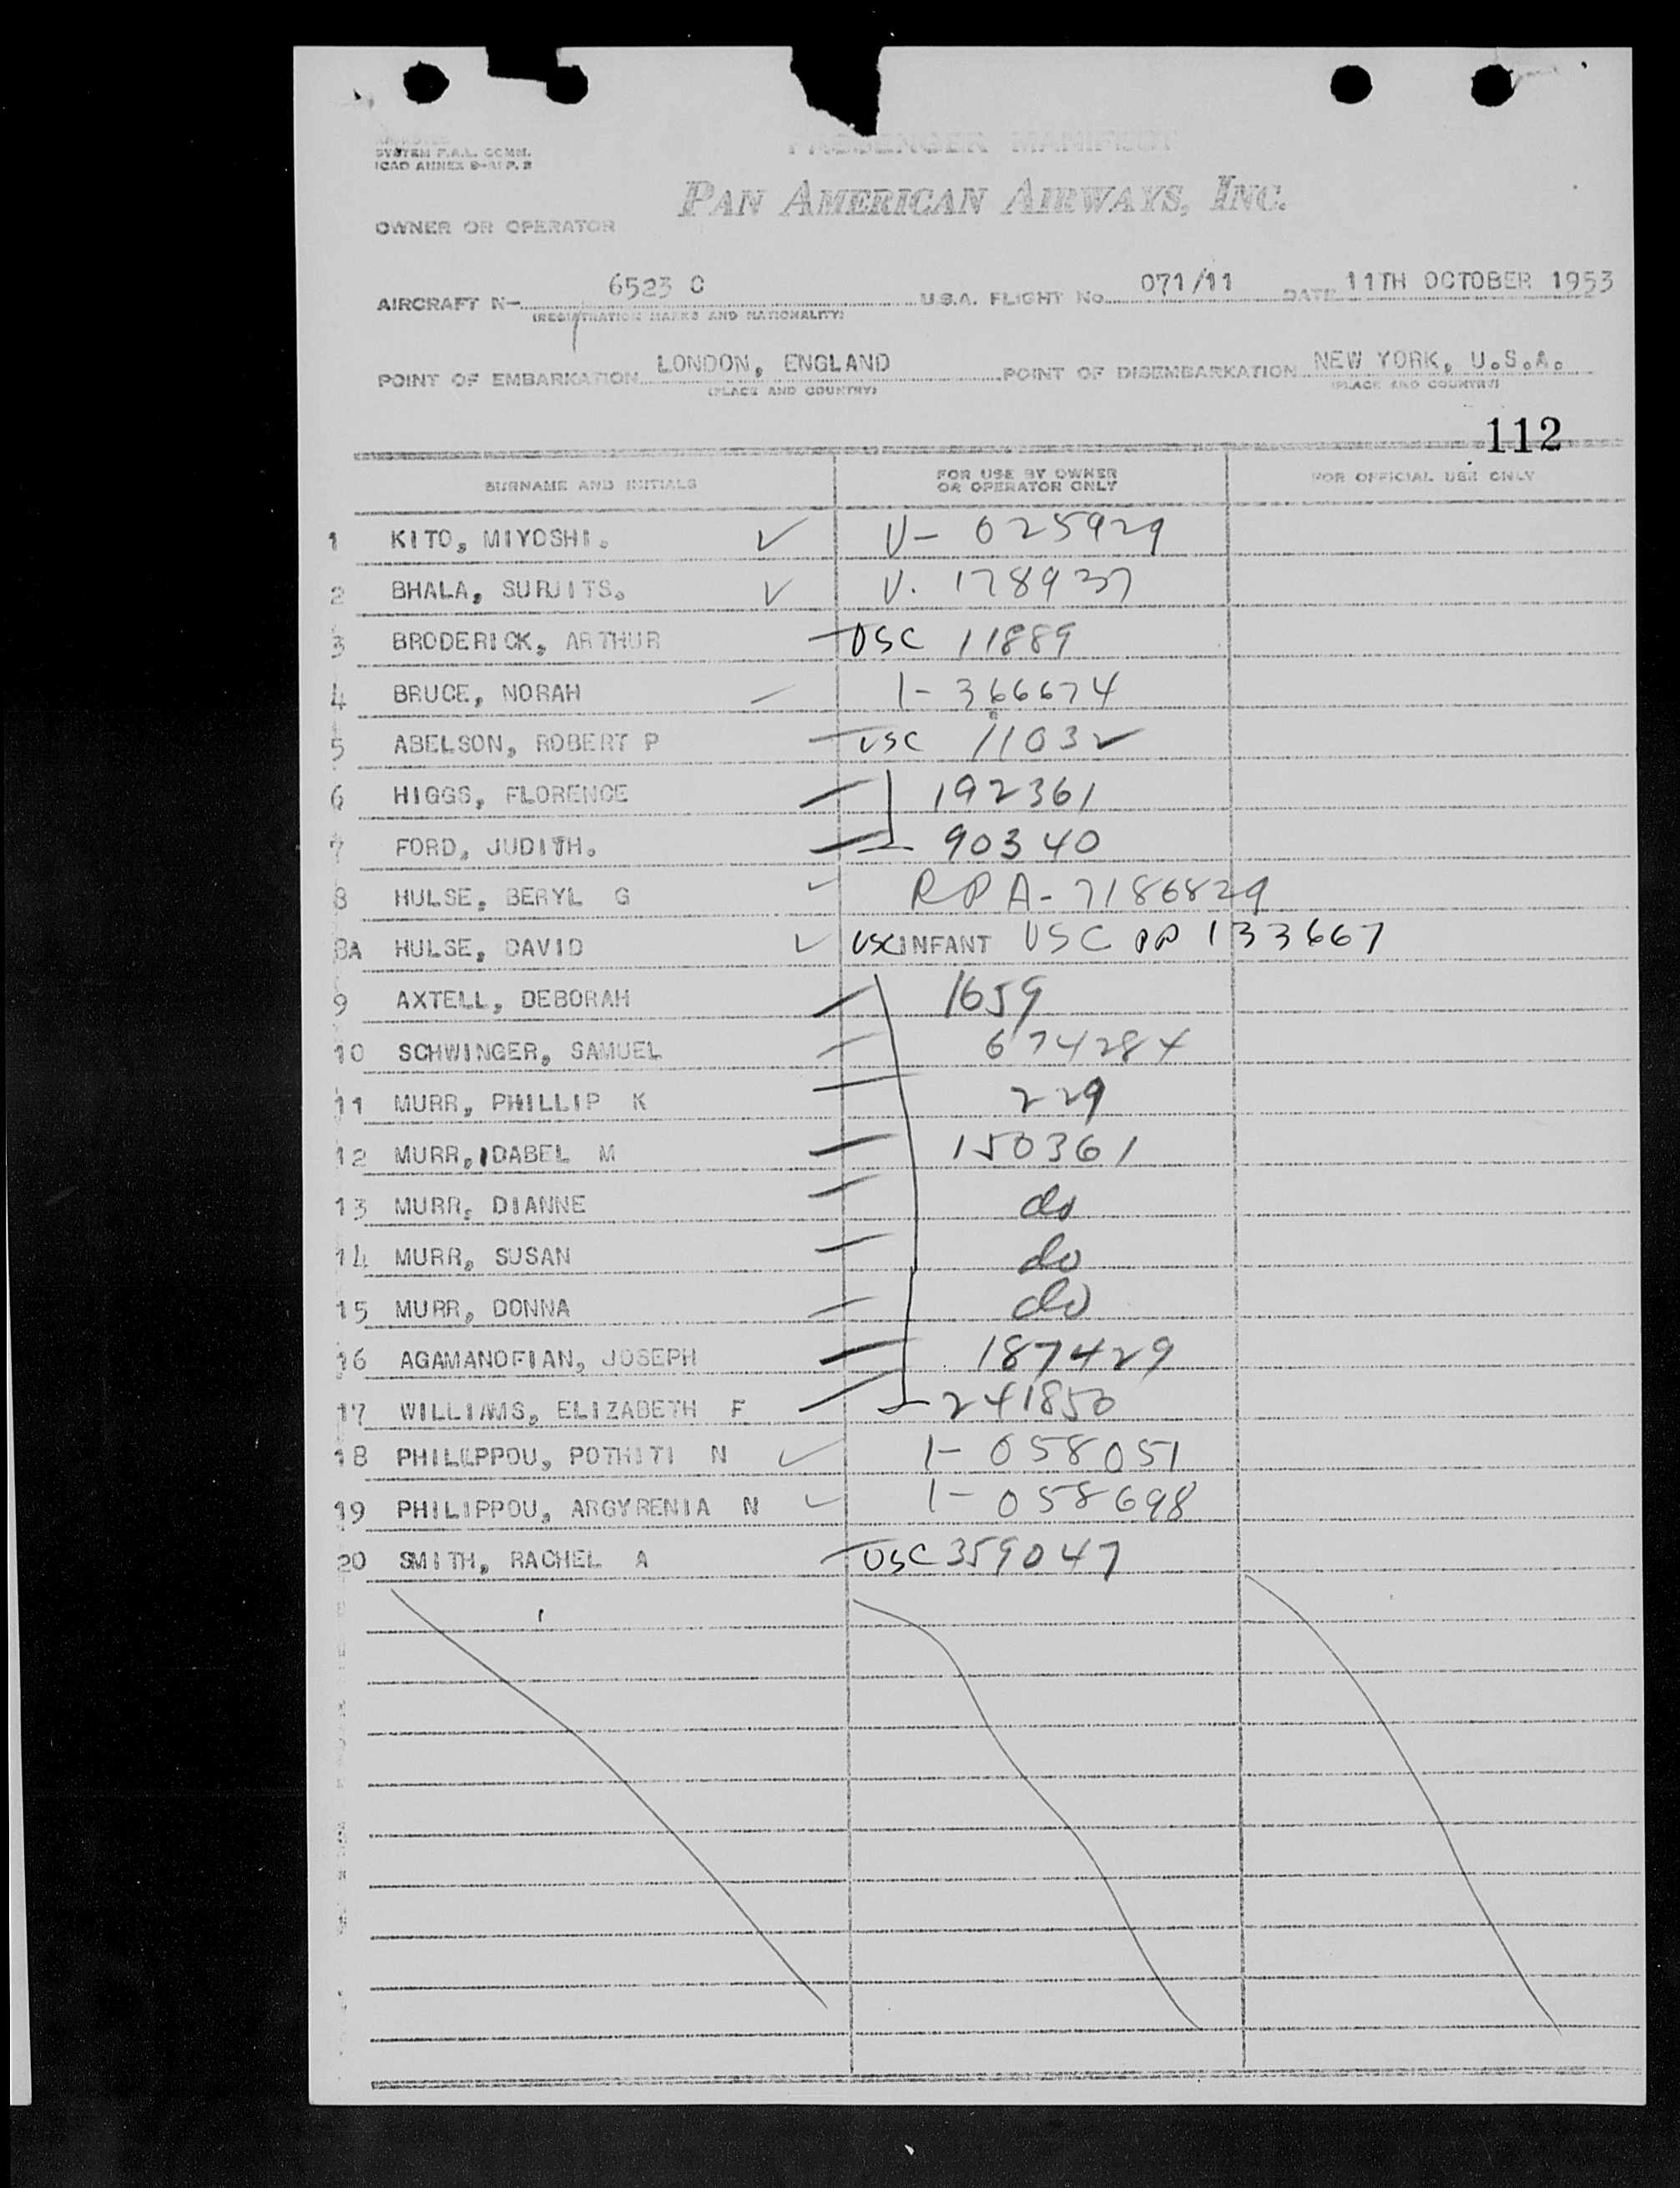 SYSTEM F.A.L. COMM.
ICAO ANNEX 9-A1 P. 2
PASSENGER MANIFEST
PAN AMERICAN AIRWAYS, INC.
OWNER OR OPERATOR
AIRCRAFT N- 6523 C U.S.A. FLIGHT No. 071/11 DATE 11TH OCTOBER 1953
(REGISTRATION MARKS AND NATIONALITY)
POINT OF EMBARKATION LONDON, ENGLAND POINT OF DISEMBARKATION NEW YORK, U.S.A.
(PLACE AND COUNTRY) (PLACE AND COUNTRY)
112
SURNAME AND INITIALS FOR USE BY OWNER OR OPERATOR ONLY FOR OFFICIAL USE ONLY
1 KITO, MIYOSHI. ✓ V- 025929
2 BHALA, SURJITS. ✓ V. 178937
3 BRODERICK, ARTHUR USC 11889
4 BRUCE, NORAH 1- 366674
5 ABELSON, ROBERT P USC 11032
6 HIGGS, FLORENCE 192361
7 FORD, JUDITH. 90340
8 HULSE, BERYL G ✓ RPA- 7186829
8A HULSE, DAVID ✓ USC INFANT USC PP 133667
9 AXTELL, DEBORAH 1659
10 SCHWINGER, SAMUEL 674284
11 MURR, PHILLIP K 229
12 MURR, IDABEL M 150361
13 MURR, DIANNE do
14 MURR, SUSAN do
15 MURR, DONNA do
16 AGAMANOFIAN, JOSEPH 187429
17 WILLIAMS, ELIZABETH F 241850
18 PHILIPPOU, POTHITI N ✓ 1- 058051
19 PHILIPPOU, ARGYRENIA N ✓ 1- 058698
20 SMITH, RACHEL A USC 359047